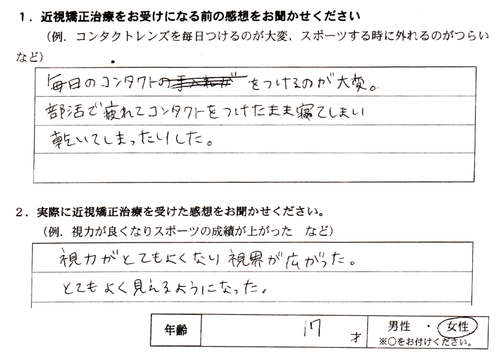 1．近視矯正治療をお受けになる前の感想をお聞かせください
（例．コンタクトレンズを毎日つけるのが大変、スポーツする時に外れるのがつらい
など）
毎日のコンタクトの手入れがをつけるのが大変。
部活で疲れてコンタクトをつけたまま寝てしまい
乾いてしまったりした。
2．実際に近視矯正治療を受けた感想をお聞かせください。
（例．視力が良くなりスポーツの成績が上がった　など）
視力がとてもよくなり視界が広がった。
とてもよく見えるようになった。
年齢　17　才　男性　・　女性
※○をお付けください。